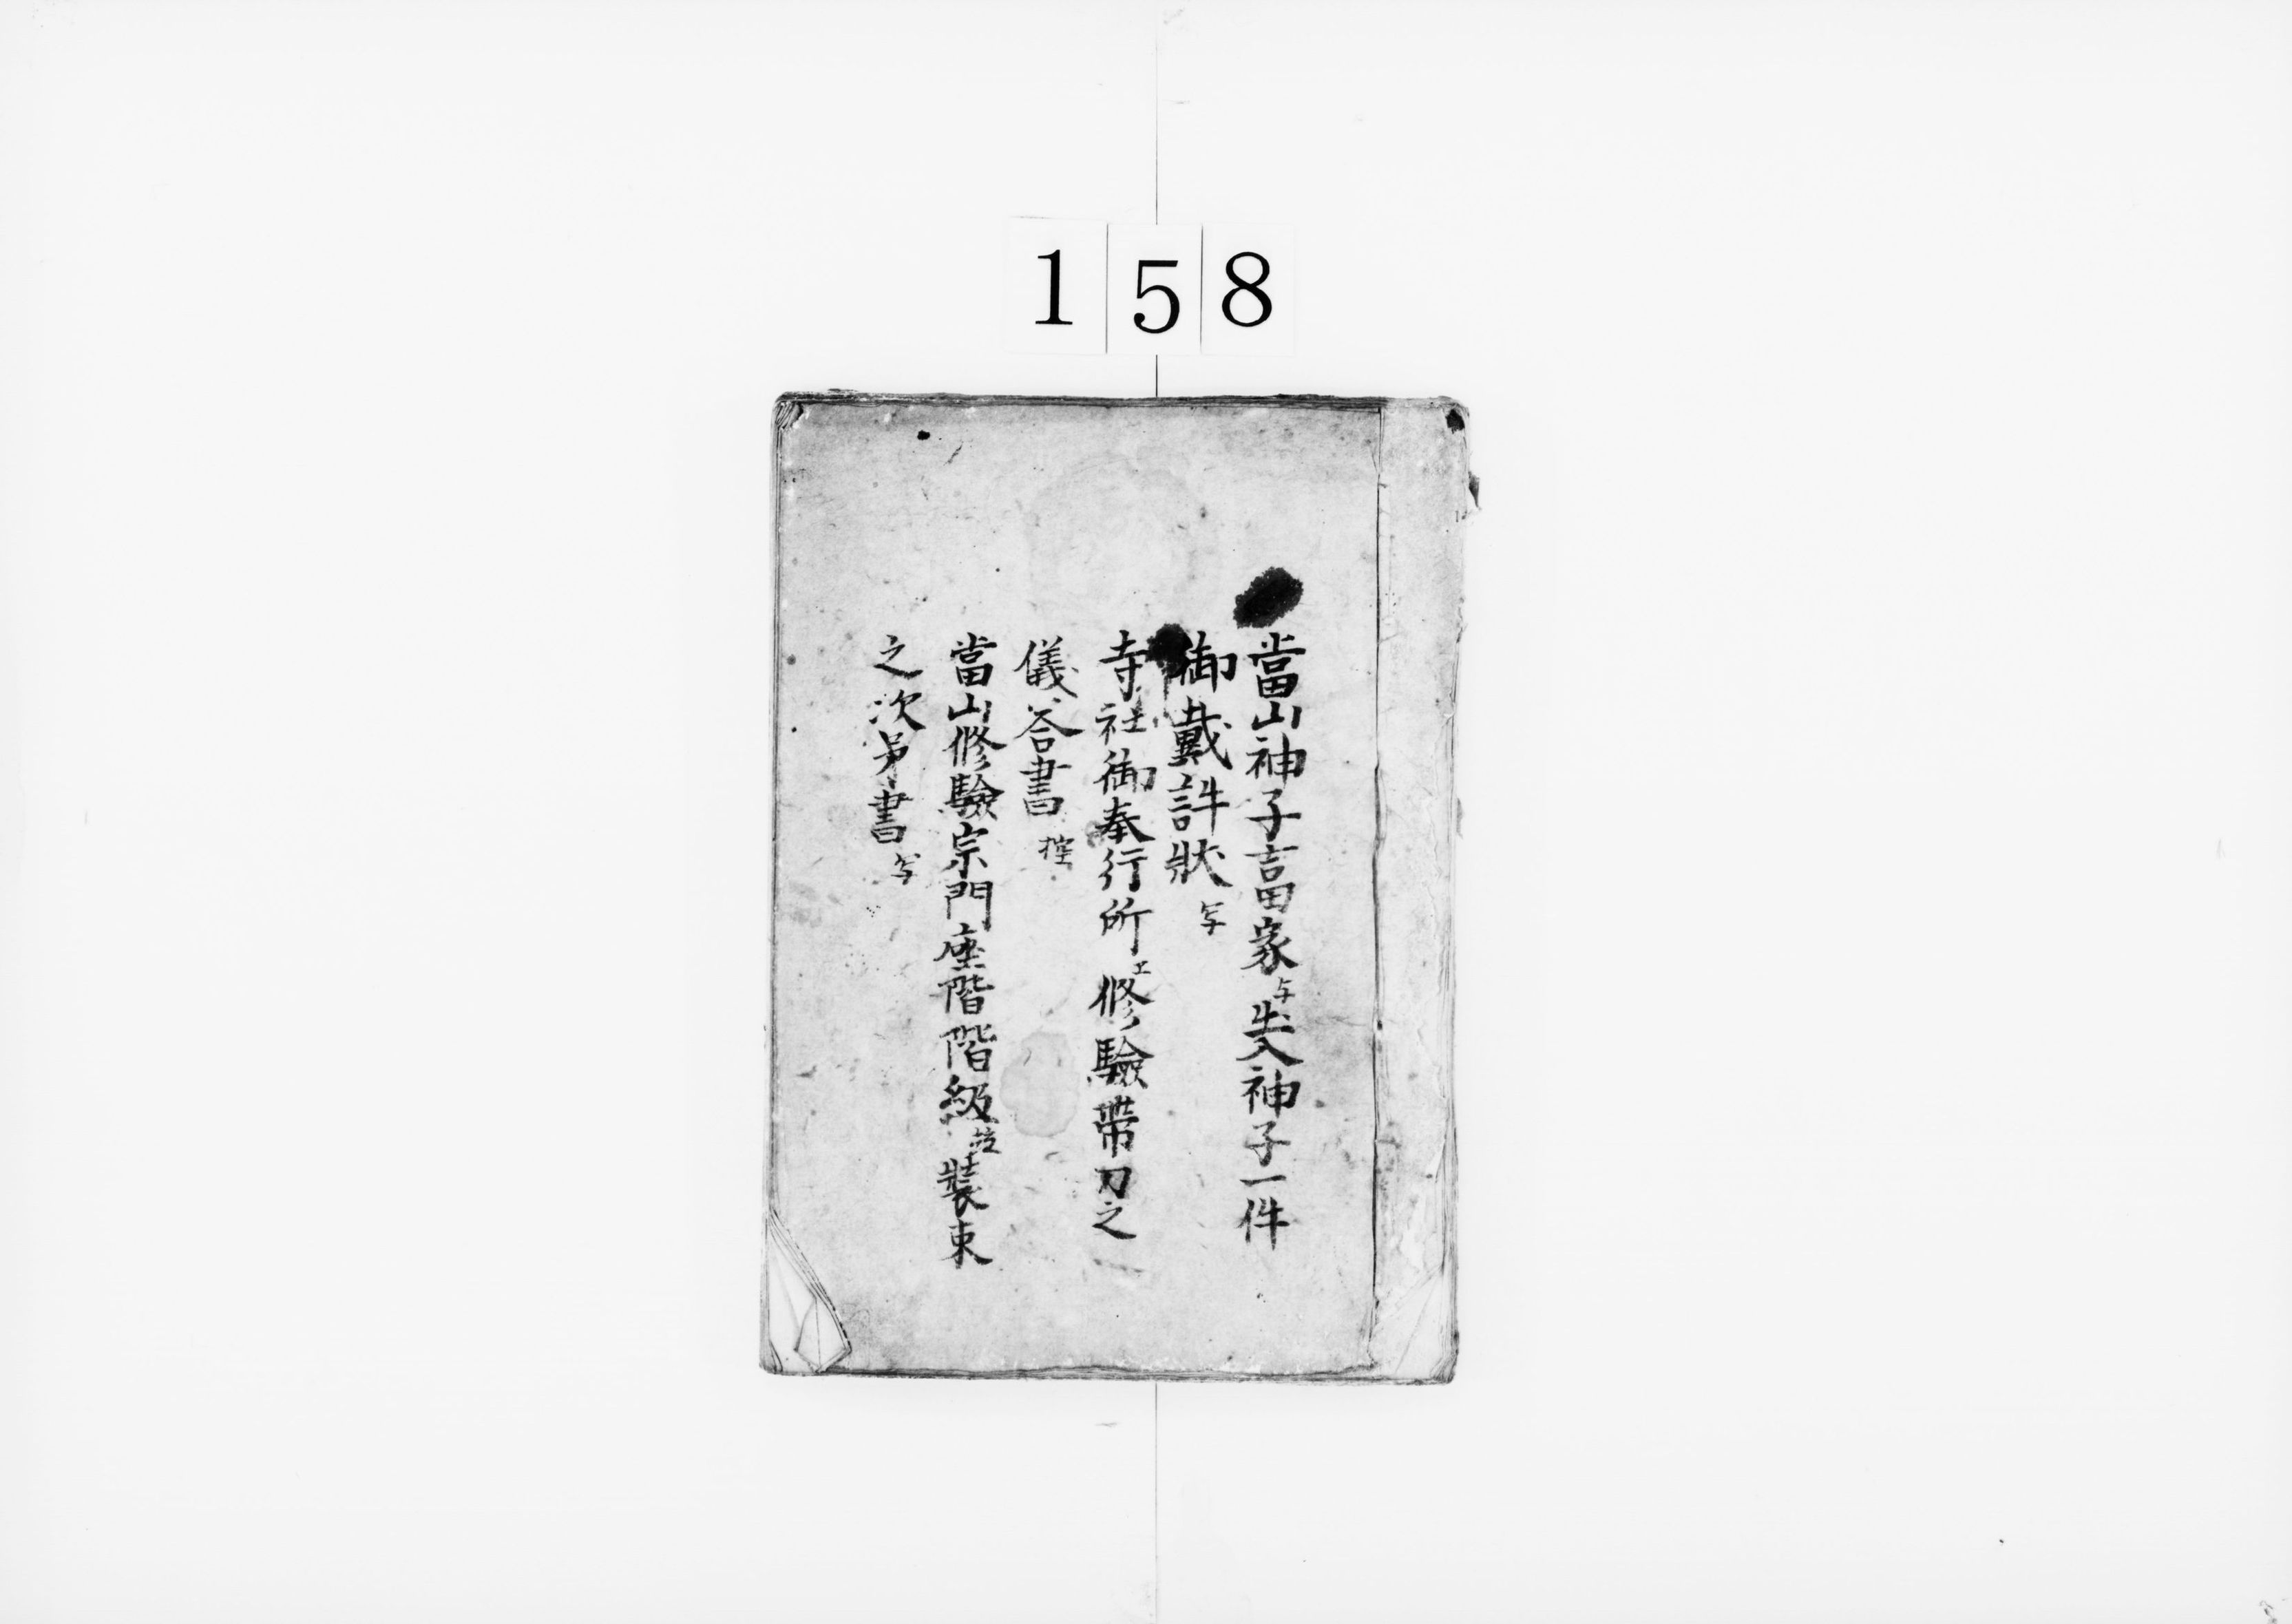 158
當山神子吉田家与神子一件
御戴許狀写
寺社御奉行所エ修驗帶刀之
儀答書控
當山修驗宗門座階階級並裝束
之次第書写